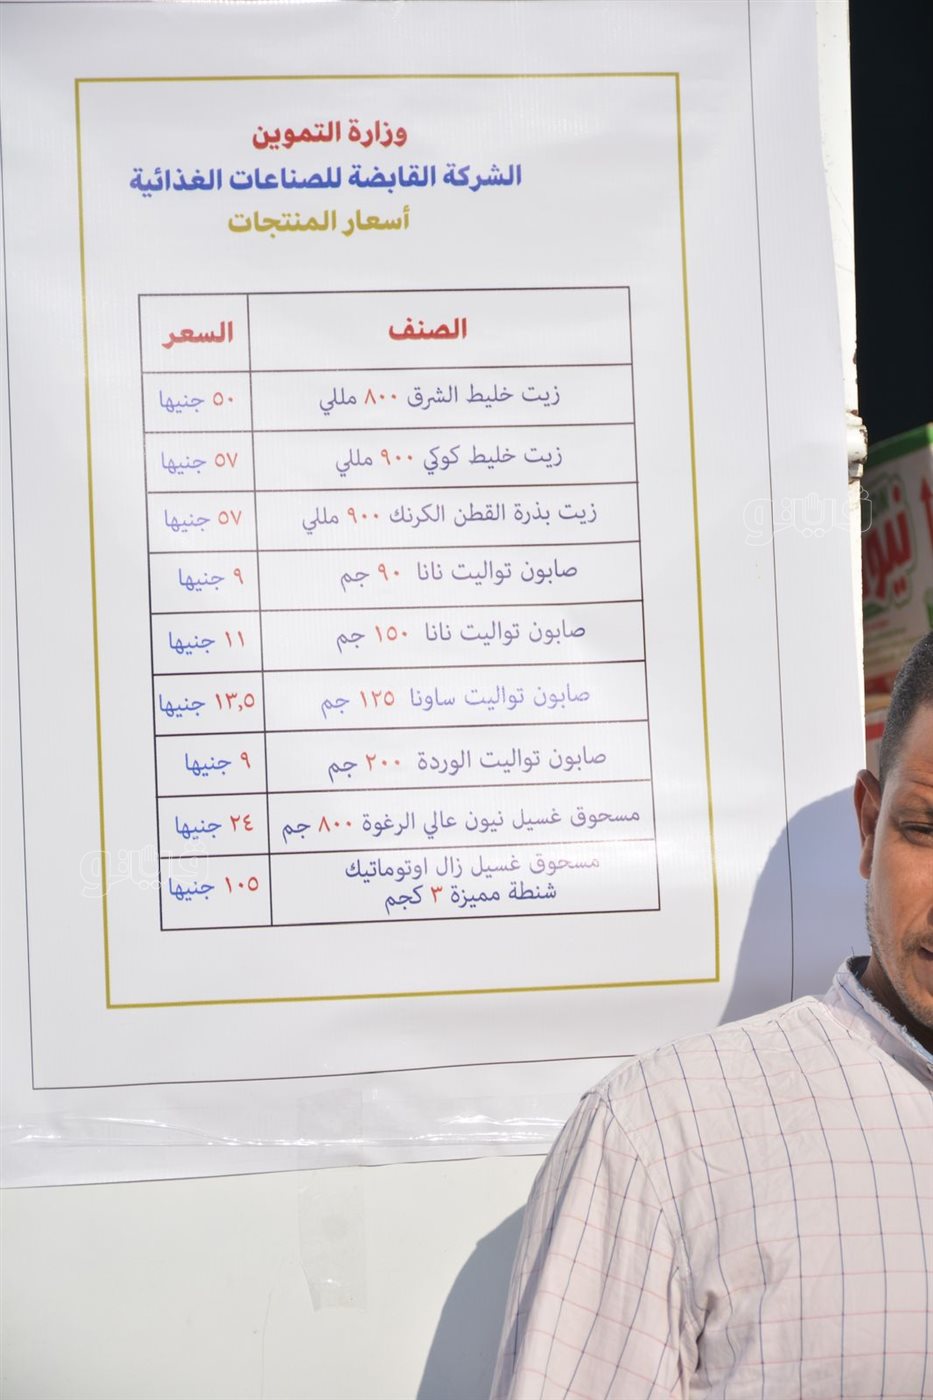 وزارة التموين
الشركة القابضة للصناعات الغذائية
أسعار المنتجات
الصنف السعر
زيت خليط الشرق ٨٠٠ مللي ٥٠ جنيها
زيت خليط كوكي ٩٠٠ مللي ٥٧ جنيها
زيت بذرة القطن الكرنك ٩٠٠ مللي ٥٧ جنيها
صابون تواليت نانا ٩٠ جم ٩ جنيها
صابون تواليت نانا ١٥٠ جم ١١ جنيها
صابون تواليت ساونا ١٢٥ جم ١٣,٥ جنيها
صابون تواليت الوردة ٢٠٠ جم ٩ جنيها
مسحوق غسيل نيون عالي الرغوة ٨٠٠ جم ٢٤ جنيها
مسحوق غسيل زال اوتوماتيك
شنطة مميزة ٣ كجم ١٠٥ جنيها
فيتو
فيتو